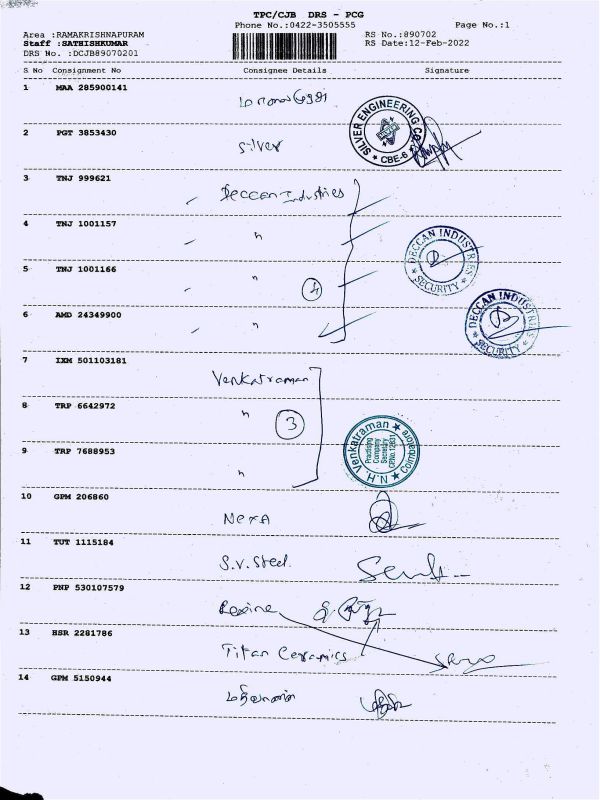 TPC/CJB DRS - PCG
Phone No.:0422-3505555 Page No.:1
Area :RAMAKRISHNAPURAM RS No.:890702
Staff :SATHISHKUMAR RS Date:12-Feb-2022
DRS No. :DCJB89070201
S No Consignment No Consignee Details Signature
1 MAA 285900141
SILVER ENGINEERING CO. CBE-6
2 PGT 3853430 Silver
3 TNJ 999621 Deccan Industries
4 TNJ 1001157 "
DECCAN INDUSTRIES SECURITY
5 TNJ 1001166 " 4
6 AMD 24349900 "
DECCAN INDUSTRIES SECURITY
7 IXM 501103181 Venkatraman
8 TRP 6642972 " 3
N.H. Venkatraman Practising Company Secretary Coimbatore
9 TRP 7688953 "
10 GPM 206860 NEXA
11 TUT 1115184 S.V. Steel.
12 PNP 530107579 Rexine
13 HSR 2281786 Titan Ceramics
14 GPM 5150944